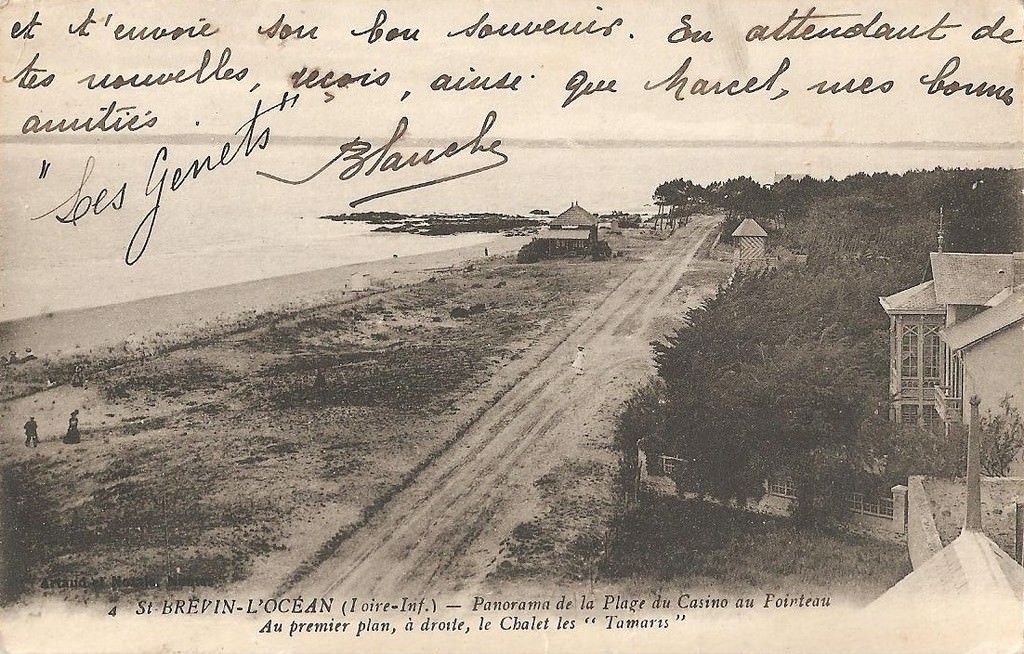 et t'envoie son bon souvenir. En attendant de
tes nouvelles, reçois, ainsi que Marcel, mes bonnes
amitiés.
Blanche
"Les Genets"
Artaud et Nozais, Nantes
4 St-BREVIN-L'OCÉAN (Loire-Inf.) — Panorama de la Plage du Casino au Pointeau
Au premier plan, à droite, le Chalet les "Tamaris"